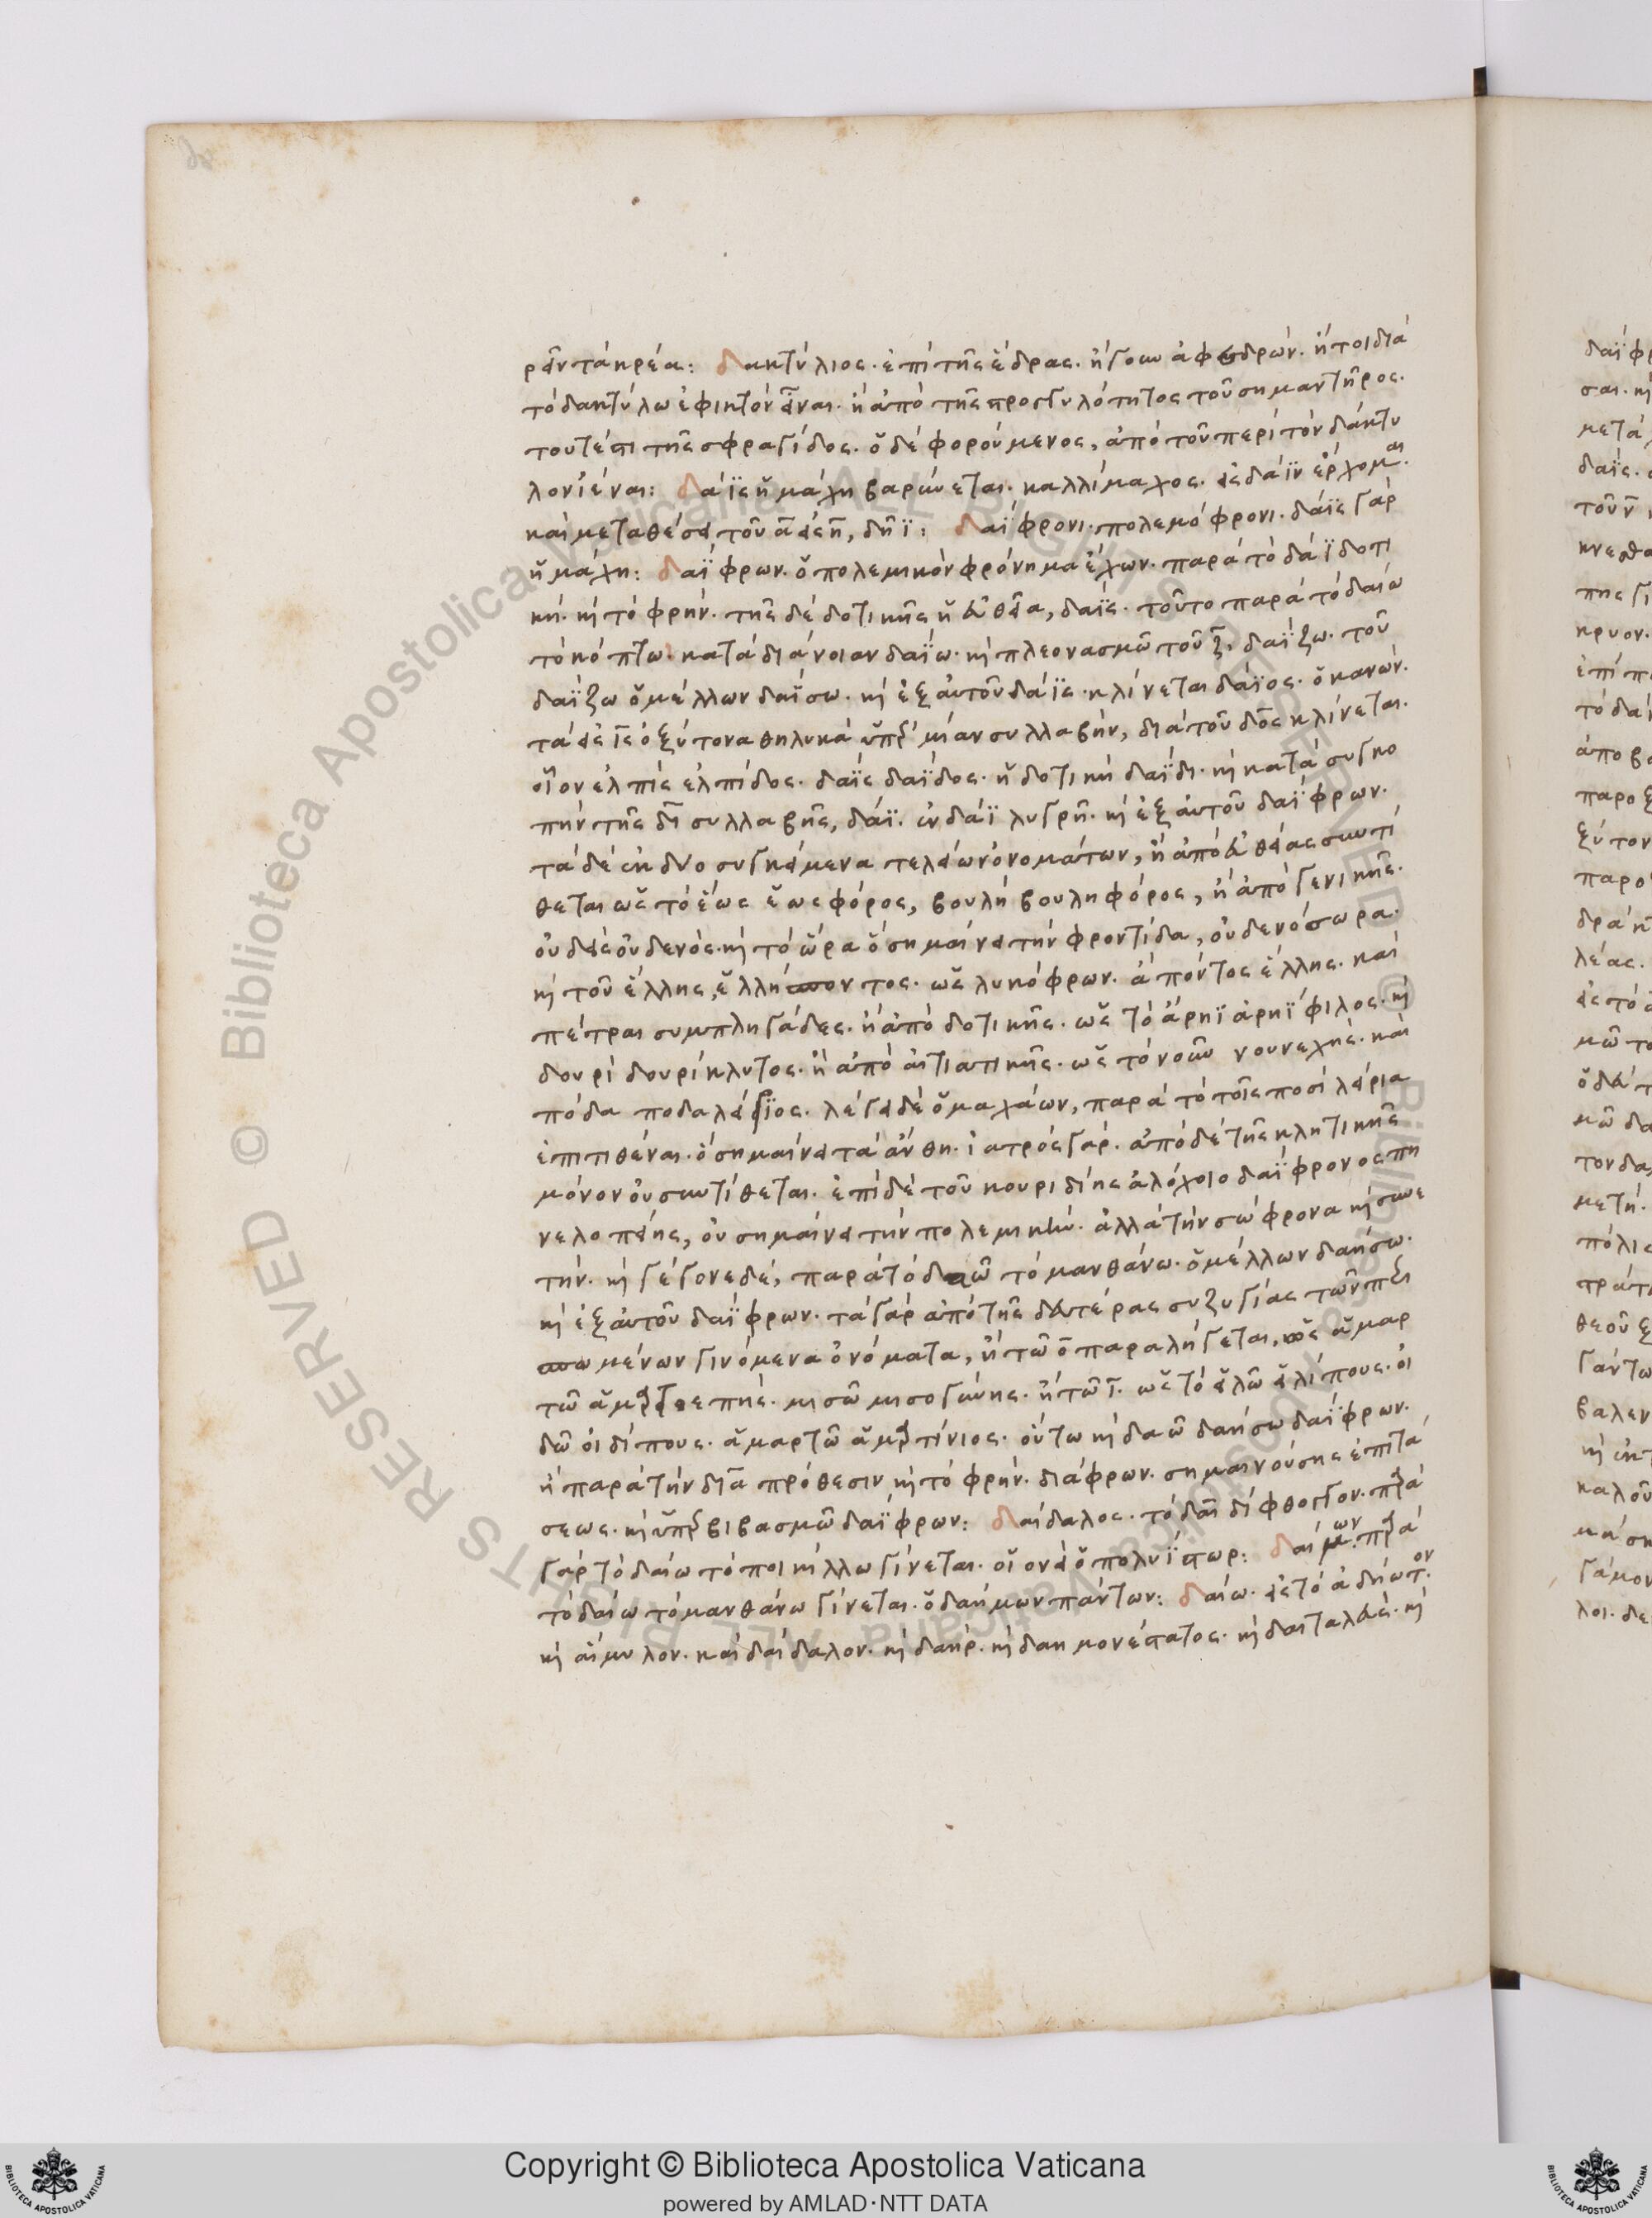 ρεῖν τὰ κρέα: δακτύλιος· ἐπὶ τῆς ἕδρας. ἤγουν ἀφεδρών. ἤτοι διὰ
τὸ δακτύλω ἐφικτὸν εἶναι. ἢ ἀπὸ τῆς στρογγυλότητος τοῦ σημαντῆρος.
τουτέστι τῆς σφραγίδος. ὁ δὲ φορούμενος, ἀπὸ τοῦ περὶ τὸν δάκτυ
λον ἰέναι: δάϊς ἡ μάχη βαρύνεται. καλλίμαχος. εἰς δάϊν ἔρχομαι.
καὶ μεταθέσει τοῦ α εἰς η, δηΐ: δαΐφρονι· πολεμόφρονι. δάϊς γὰρ
ἡ μάχη: δαΐφρων. ὁ πολεμικὸν φρόνημα ἔχων. παρὰ τὸ δάϊ δοτι
κὴ. κὶ τὸ φρήν. τῆς δὲ δοτικῆς ἡ εὐθεῖα, δαΐς. τοῦτο παρὰ τὸ δαίω
τὸ κόπτω. κατὰ διάνοιαν δαΐω. κὶ πλεονασμῶ τοῦ ζ, δαΐζω. τοῦ
δαΐζω ὁ μέλλων δαΐσω. κὶ ἐξ αὐτοῦ δάϊς. κλίνεται δάϊος. ὁ κανών.
τὰ εἰς ις ὀξύτονα θηλυκὰ ὑπὲρ μίαν συλλαβὴν, διὰ τοῦ δος κλίνεται.
οἷον ἐλπὶς ἐλπίδος. δαΐς δαΐδος. ἡ δοτικὴ δαΐδι. κὶ κατὰ συγκο
πὴν τῆς δι συλλαβῆς, δάϊ. ἐν δάϊ λυγρῆ. κὶ ἐξ αὐτοῦ δαΐφρων.
τὰ δὲ ἐκ δύο συγκείμενα τελείων ὀνομάτων, ἢ ἀπὸ εὐθείας συντί
θεται ὡς τὸ ἕως ἑωσφόρος, βουλὴ βουληφόρος, ἢ ἀπὸ γενικῆς.
οὐδεὶς οὐδενός. κὶ τὸ ὤρα ὃ σημαίνει τὴν φροντίδα, οὐδενόσωρα.
κὶ τοῦ ἕλλης, ἑλλήσποντος. ὡς λυκόφρων. ἅ πόντος ἕλλης. καὶ
πέτραι συμπληγάδες. ἢ ἀπὸ δοτικῆς. ὡς τὸ ἄρηϊ ἀρηΐφιλος. κὶ
δουρὶ δουρίκλυτος. ἢ ἀπὸ αἰτιατικῆς. ὡς τὸ νοῦν νουνεχής. καὶ
πόδα ποδαλείριος. λέγει δὲ ὁ μαχάων, παρὰ τὸ τοῖς ποσὶ λείρια
ἐπιτιθέναι. ὃ σημαίνει τὰ ἄνθη. ἰατρὸς γάρ. ἀπὸ δὲ τῆς κλητικῆς
μόνον οὐ συντίθεται. ἐπὶ δὲ τοῦ κουριδίης ἀλόχοιο δαΐφρονος πη
νελοπείης, οὐ σημαίνει τὴν πολεμικήν. ἀλλὰ τὴν σώφρονα κὶ συνε
τήν. κὶ γέγονε δὲ, παρὰ τὸ δαῶ τὸ μανθάνω. ὁ μέλλων δαήσω.
κὶ ἐξ αὐτοῦ δαΐφρων. τὰ γὰρ ἀπὸ τῆς δευτέρας συζυγίας τῶν περι
σπωμένων γινόμενα ὀνόματα, ἢ τῶ ο παραλήγεται, ὡς ἁμαρ
τῶ ἁμαρτοεπής. μισῶ μισογύνης. ἢ τῶ ι. ὡς τὸ εἱλῶ εἱλίπους. οἰ
δῶ οἰδίπους. ἁμαρτῶ ἁμαρτίνιος. οὕτω κὶ δαῶ δαήσω δαΐφρων.
ἢ παρὰ τὴν διὰ πρόθεσιν κὶ τὸ φρήν. διάφρων. σημαινούσης ἐπιτά
σεως. κὶ ὑπερβιβασμῶ δαΐφρων: δαίδαλος· τὸ δαι δίφθογγον. παρὰ
γὰρ τὸ δαίω τὸ ποικίλλω γίνεται. οἱονεὶ ὁ πολυΐστωρ: δαίμων. παρὰ
τὸ δαίω τὸ μανθάνω γίνεται. ὁ δαήμων πάντων: δαίω. εἰς τὸ ἀδήωτον.
κὶ αἱμύλον. καὶ δαίδαλον. κὶ δαήρ. κὶ δαημονέστατος. κὶ δαιταλεύς. κὶ
Copyright © Biblioteca Apostolica Vaticana
powered by AMLAD·NTT DATA